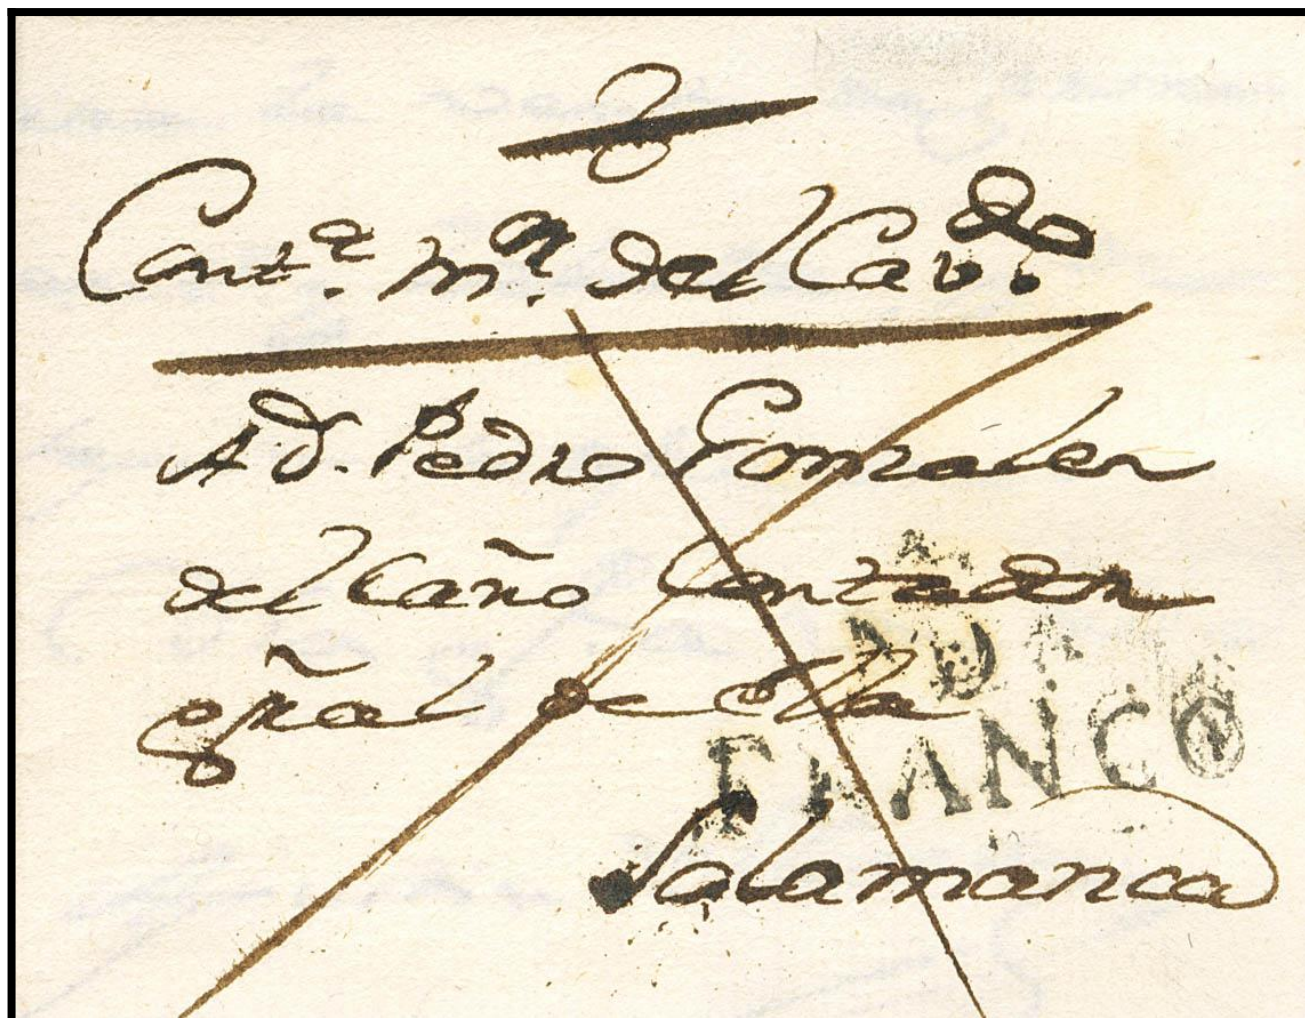 Cont.ª m.ª del Cav.do
A d. Pedro Gonzalez
del Caño Contador
gñal de ella
FRANCO
Salamanca